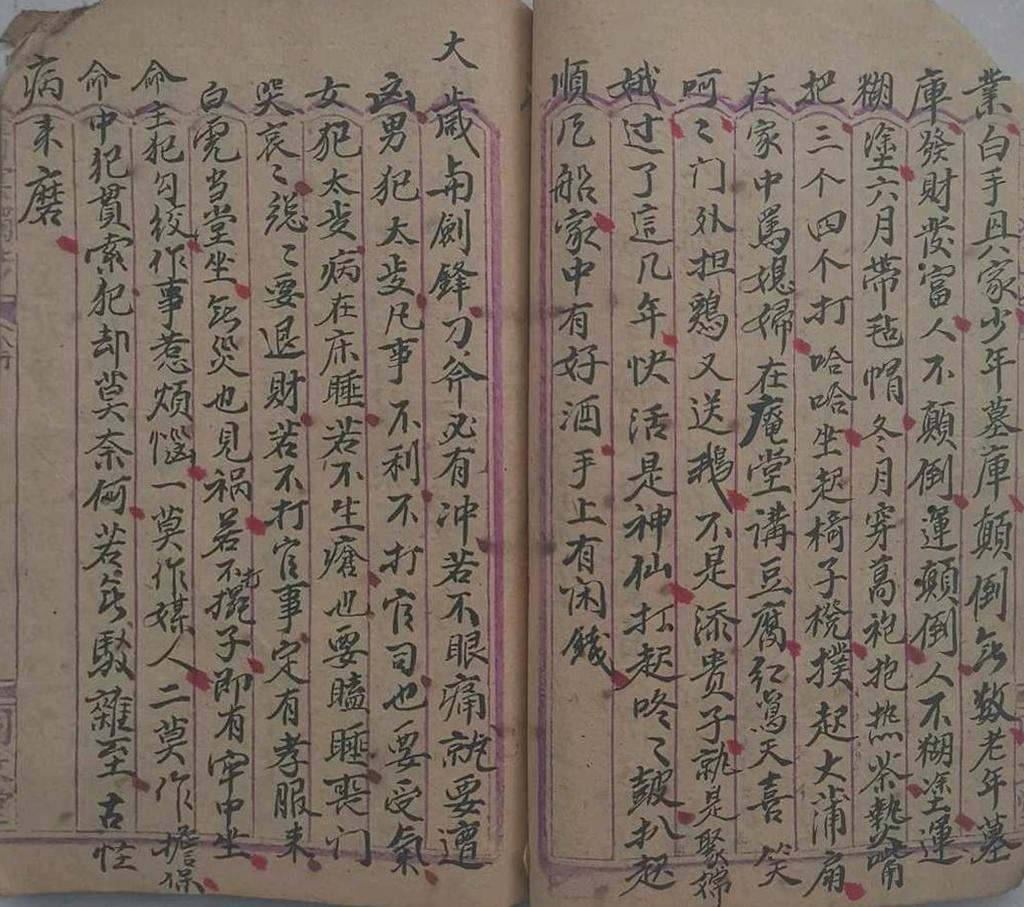 業白手興家少年墓庫顛倒無数老年墓
庫發財發富人不顛倒運顛倒人不糊塗運
糊塗六月帶毡帽冬月穿高袍抱热茶熱嘴
把三个四个打哈哈坐起椅子櫈撲起大蒲扇
在家中罵媳婦在庵堂講豆腐红鸾天喜笑
呵〻门外担鷄又送鹅不是添贵子就是娶婦
娥过了這几年快活是神仙打起咚〻鼓扒起
順风船家中有好酒手上有闲錢
大歲与劍鋒刀斧必有冲若不眼痛就要遭
凶男犯太歩凡事不利不打官司也要受氣
女犯太歩病在床睡若不生瘡也要瞌睡喪门
哭哀〻魂〻要退財若不打官事定有孝服来
白虎当堂坐無災也見祸若不擺子即有牢中坐
命主犯勾绞作事惹煩惱一莫作媒人二莫作擔保
命中犯貫索犯却莫奈何若無駁雜至古怪
病来磨